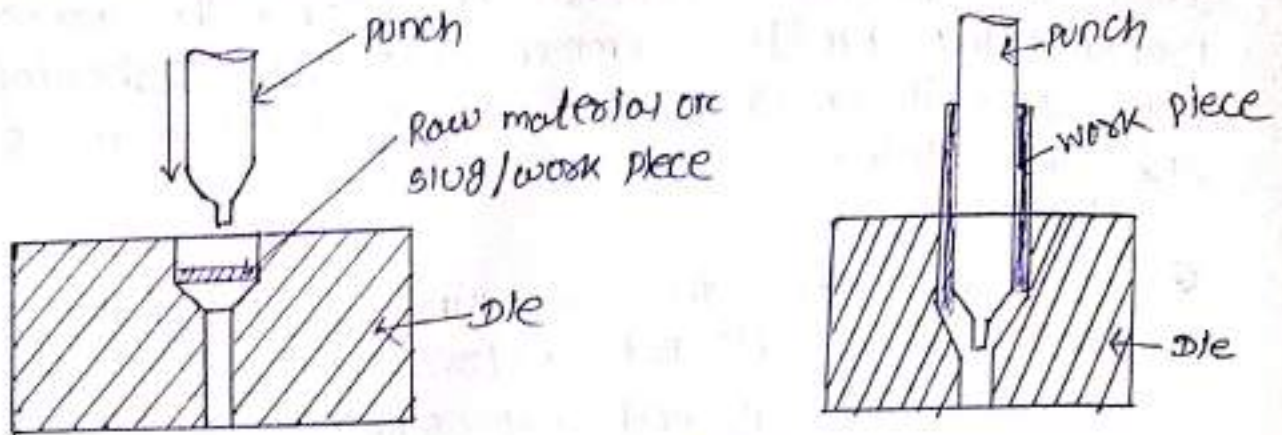 punch
Raw material orc
slug/work piece
Die
punch
work piece
Die